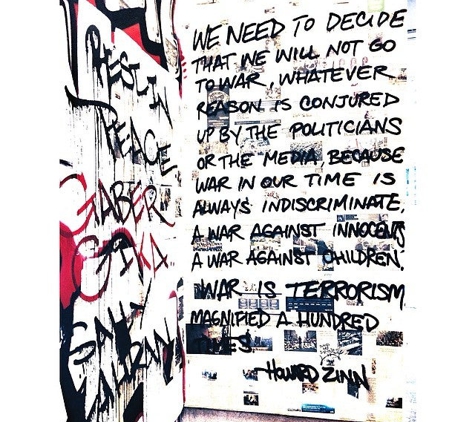 REST IN
PEACE
GABER
GIKA
WE NEED TO DECIDE
THAT WE WILL NOT GO
TO WAR, WHATEVER
REASON IS CONJURED
UP BY THE POLITICIANS
OR THE MEDIA, BECAUSE
WAR IN OUR TIME IS
ALWAYS INDISCRIMINATE,
A WAR AGAINST INNOCENTS
A WAR AGAINST CHILDREN.
WAR IS TERRORISM
MAGNIFIED A HUNDRED
TIMES.
-HOWARD ZINN